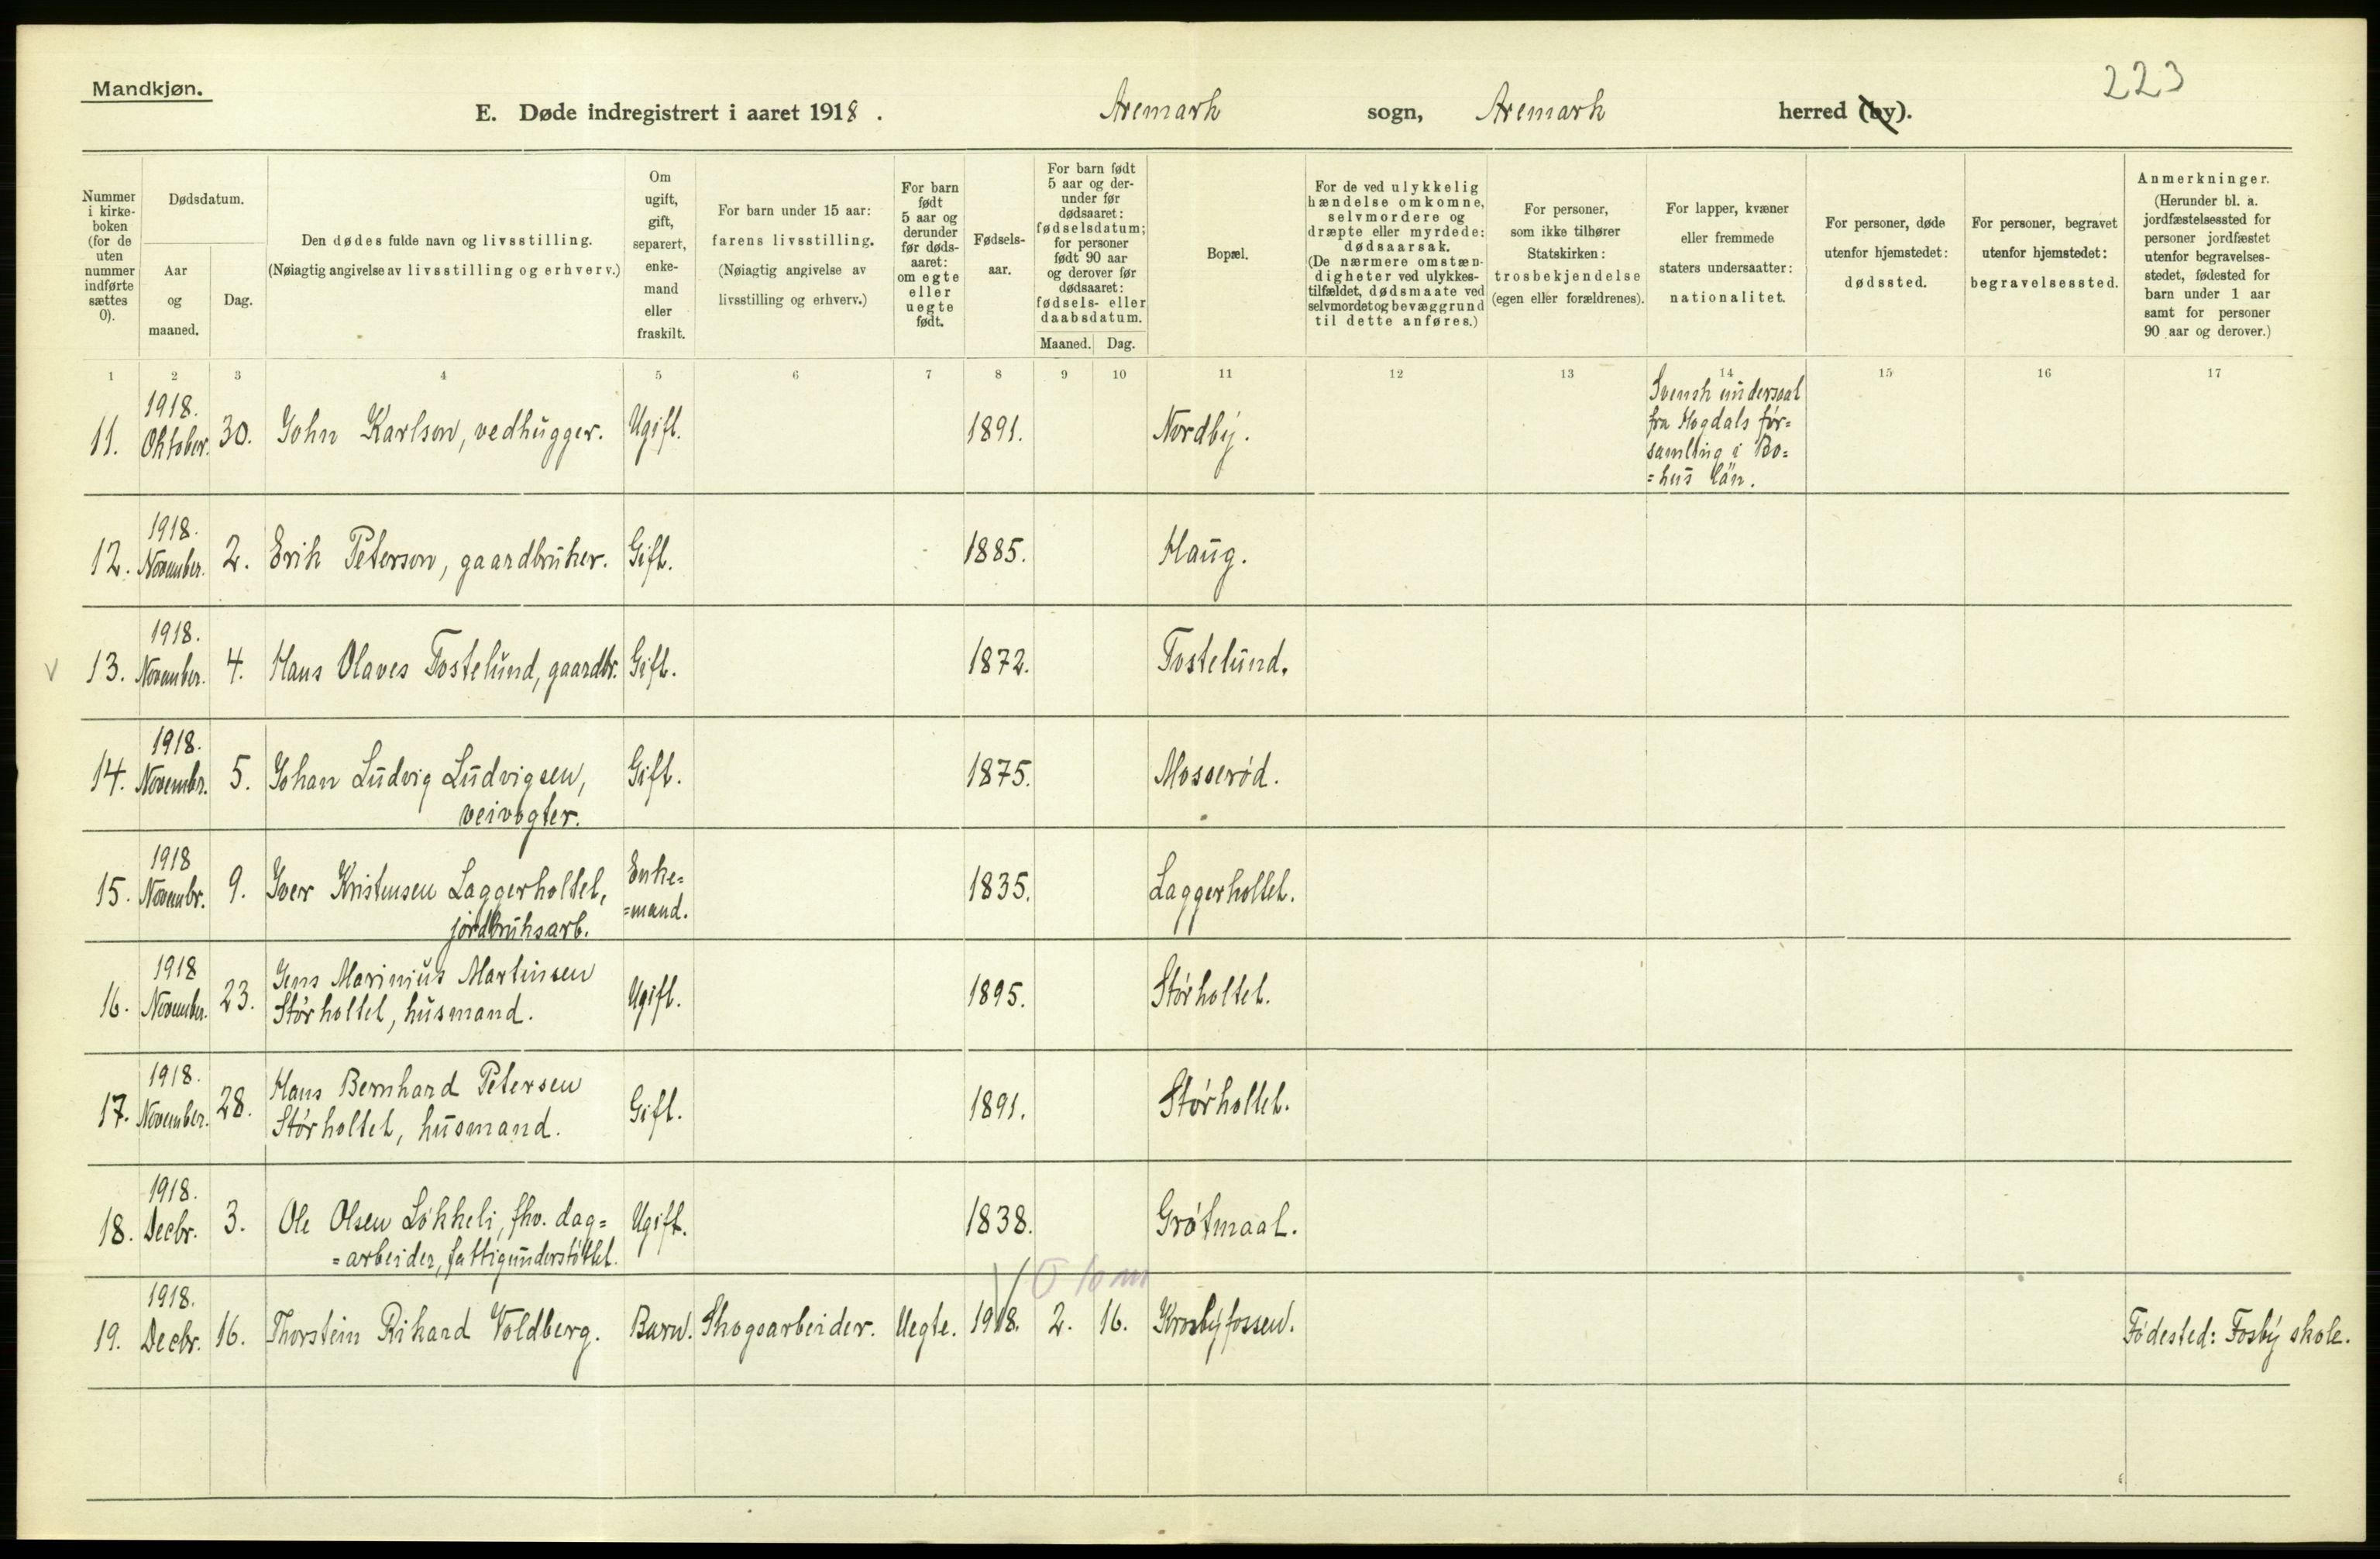 Mandkjøn.
223
E. Døde indregistrert i aaret 1918. Aremark sogn, Aremark herred (by).
Nummer i kirke-boken (for de uten nummer indførte sættes 0).
Dødsdatum.
Aar og maaned.
Dag.
Den dødes fulde navn og livsstilling.
(Nøiagtig angivelse av livsstilling og erhverv.)
Om ugift, gift, separert, enke-mand eller fraskilt.
For barn under 15 aar: farens livsstilling. (Nøiagtig angivelse av livsstilling og erhverv.)
For barn født 5 aar og derunder før døds-aaret: om egte eller uegte født.
Fødsels-aar.
For barn født 5 aar og der-under før dødsaaret: fødselsdatum; for personer født 90 aar og derover før dødsaaret: fødsels- eller daabsdatum.
Maaned. Dag.
Bopæl.
For de ved ulykkelig hændelse omkomne, selvmordere og dræpte eller myrdede: dødsaarsak. (De nærmere omstæn-digheter ved ulykkes-tilfældet, dødsmaate ved selvmordet og bevæggrund til dette anføres.)
For personer, som ikke tilhører Statskirken: trosbekjendelse (egen eller forældrenes).
For lapper, kvæner eller fremmede staters undersaatter: nationalitet.
For personer, døde utenfor hjemstedet: dødssted.
For personer, begravet utenfor hjemstedet: begravelsessted.
Anmerkninger. (Herunder bl. a. jordfæstelsessted for personer jordfæstet utenfor begravelses-stedet, fødested for barn under 1 aar samt for personer 90 aar og derover.)
1 2 3 4 5 6 7 8 9 10 11 12 13 14 15 16 17
11. 1918. Oktober. 30. John Karlson, vedhugger. Ugift. 1891. Nordby. Svensk undersaat
fra Hogdals før=
samling i Bo=
=hus län.
12. 1918. November. 2. Erik Peterson, gaardbruker. Gift. 1885. Haug.
v 13. 1918. November. 4. Hans Olaves Tostelund, gaardbr. Gift. 1872. Tostelund.
14. 1918. Novembr. 5. Johan Ludvig Ludvigsen, Gift. 1875. Mosserød.
veivogter.
15. 1918 Novembr. 9. Iver Kristensen Laggerholtet, Enke= 1835. Laggerholtet.
jordbruksarb. =mand.
16. 1918 November. 23. Jens Marinius Martinsen
Størholtet, husmand. Ugift. 1895. Størholtet.
17. 1918. November. 28. Hans Bernhard Petersen
Størholtet, husmand. Gift. 1891. Størholtet.
18. 1918. Decbr. 3. Ole Olsen Løkkeli, fhv. dag= Ugift. 1838. Grøtmaal.
=arbeider, fattigunderstøttet.
19. 1918. Decbr. 16. Thorstein Rikard Voldberg. Barn. Skogsarbeider. Uegte. 1918. 2. 16. Krosbyfossen. Fødested: Fosby skole.